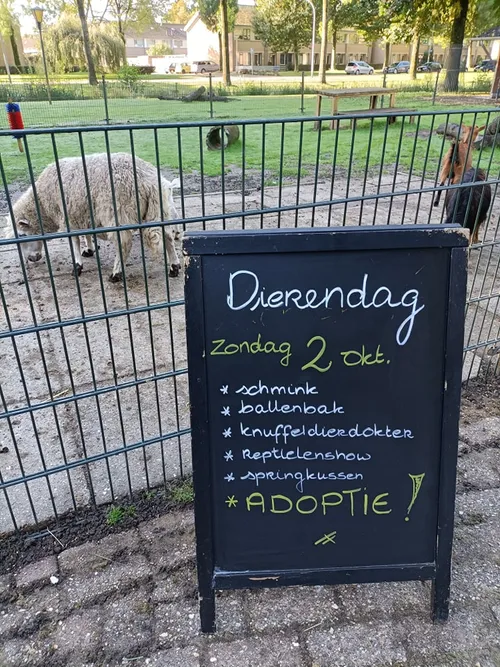 Dierendag
Zondag 2 okt.
* schmink
* ballenbak
* knuffeldierdokter
* Reptielenshow
* springkussen
* ADOPTIE!